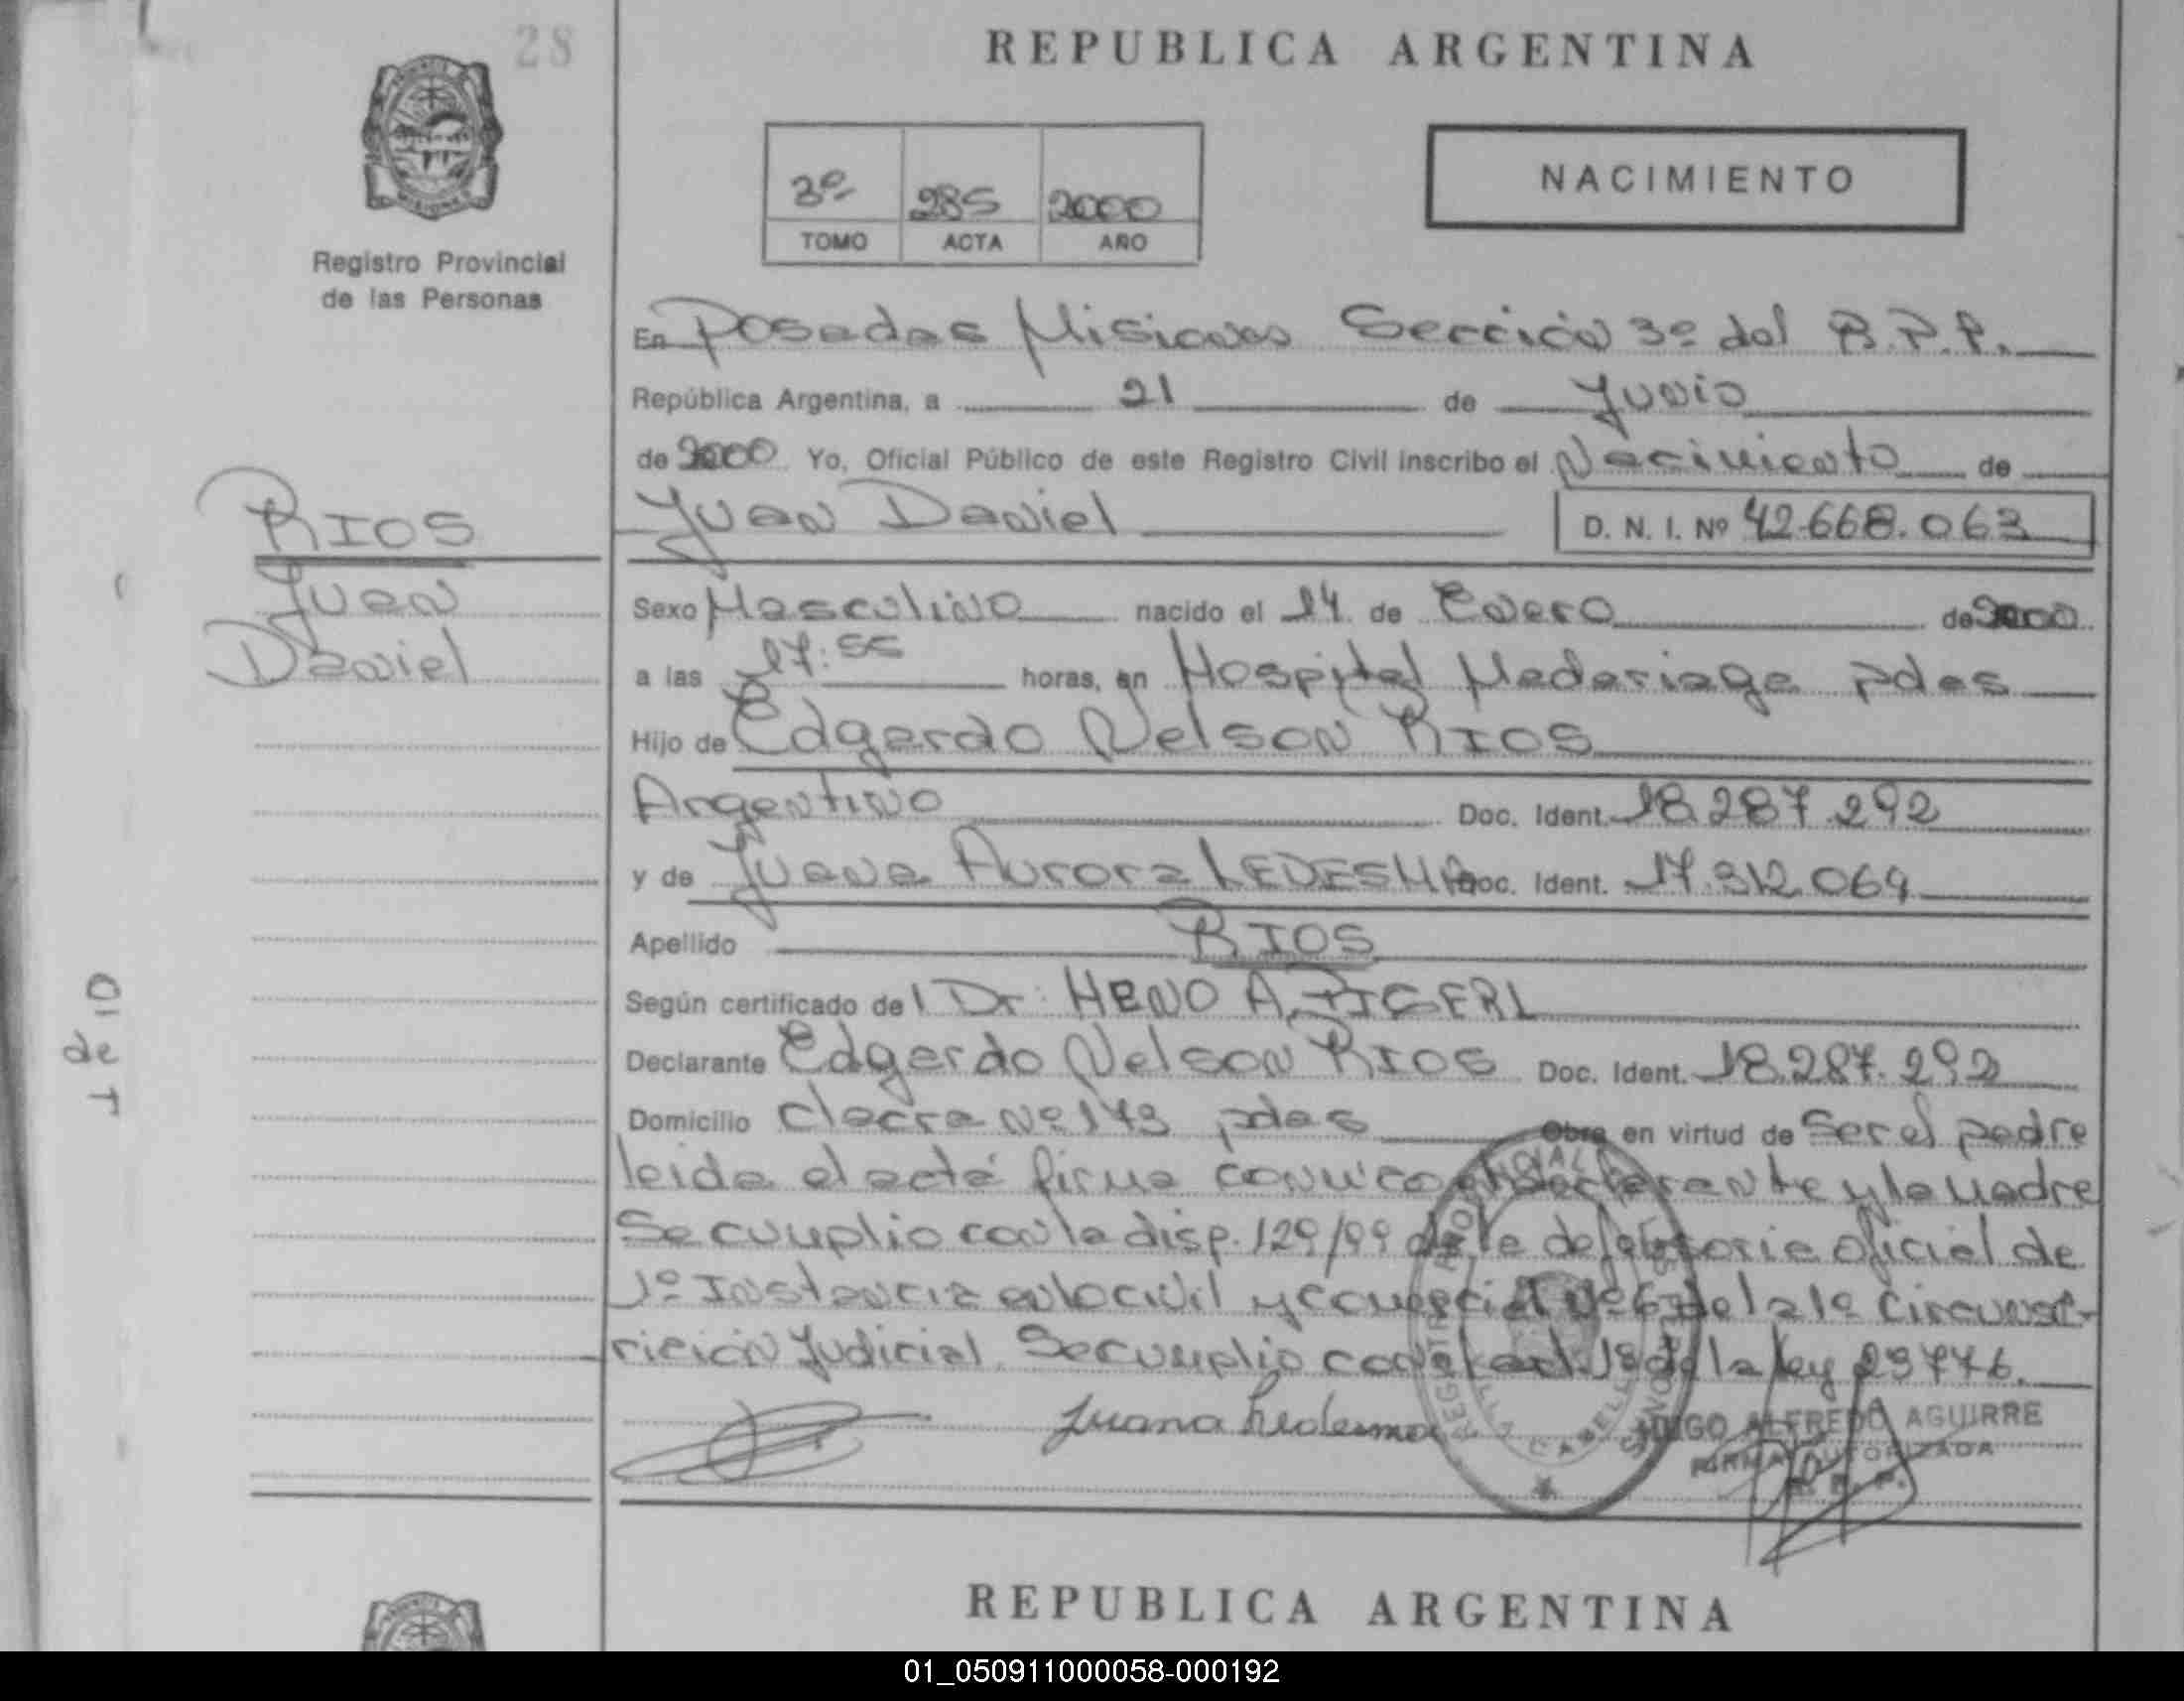 28
REPUBLICA ARGENTINA
Registro Provincial
de las Personas
3º 285 2000
TOMO ACTA AÑO
NACIMIENTO
En Posadas Misiones Sección 3º del R.P.P.
República Argentina, a 21 de Junio
de 2000 Yo, Oficial Público de este Registro Civil inscribo el Nacimiento de
Juan Daniel D. N. I. Nº 42.668.063
RIOS
Juan
Daniel
Sexo Masculino nacido el 14 de Enero de 2000
a las 17:55 horas, en Hospital Madariaga pdas
Hijo de Edgardo Nelson RIOS
Argentino Doc. Ident. 18.287.292
y de Juana Aurora LEDESMA Doc. Ident. 17.312.069
Apellido RIOS
Según certificado del Dr: HENO A.
Declarante Edgardo Nelson RIOS Doc. Ident. 18.287.292
Domicilio Chacra Nº 143 pdas Obra en virtud de Ser el padre
leida el acta firma conmigo el declarante y la madre
Se cumplio con la disp. 129/99 de la defensoria oficial de
1º Instancia en lo civil y comercial Nº 6 de la 1º Circunsc-
ripción Judicial. Se cumplio con el art. 18 de la ley 23776.
Juana Ledesma
HUGO ALFREDO AGUIRRE
FIRMA AUTORIZADA
R. P. P.
01 de T
REPUBLICA ARGENTINA
01_050911000058-000192